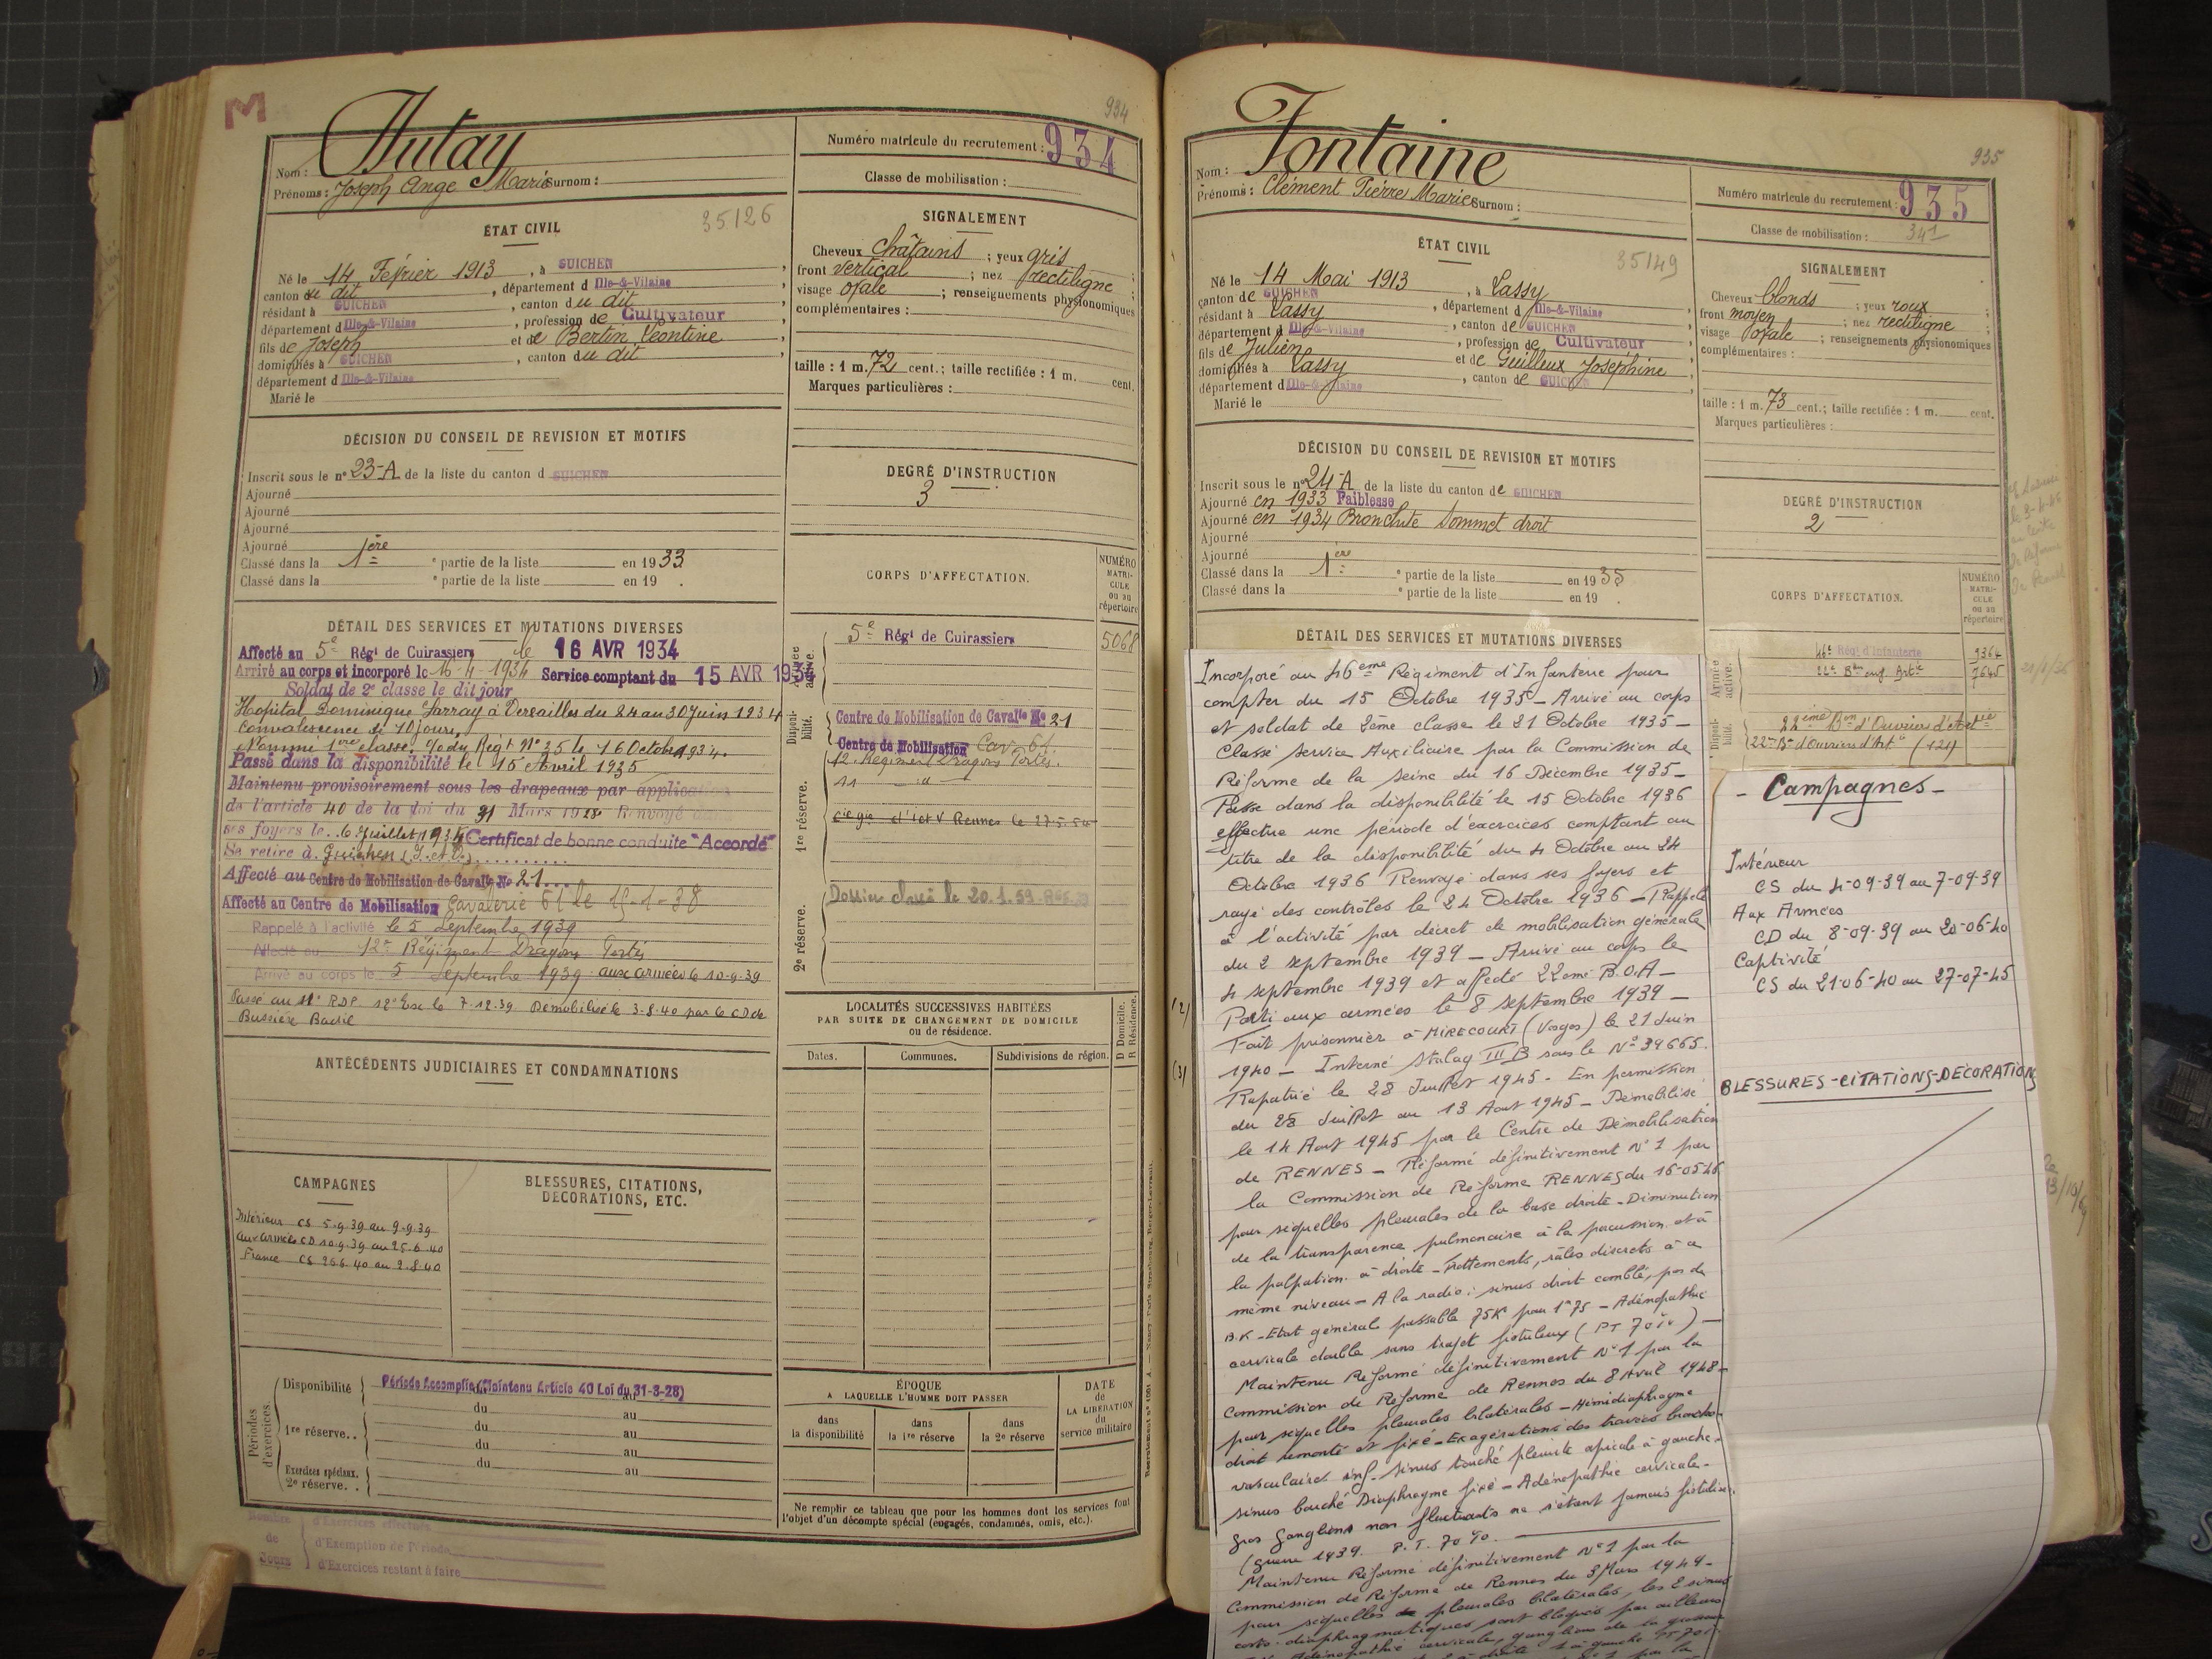 M
934
Nom : Autay
Prénoms : Joseph Ange Marie Surnom :
Numéro matricule du recrutement : 934
Classe de mobilisation :
ÉTAT CIVIL
35126
Né le 14 Février 1913, à GUICHEN
canton du dit, département d Ille-&-Vilaine
résidant à GUICHEN, canton du dit
département d Ille-&-Vilaine, profession de Cultivateur
fils de Joseph et de Bertin Léontine
domiciliés à GUICHEN, canton du dit
département d Ille-&-Vilaine
Marié le
SIGNALEMENT
Cheveux châtains ; yeux gris
front vertical ; nez rectiligne ;
visage ovale ; renseignements physionomiques
complémentaires :
taille : 1 m. 72 cent.; taille rectifiée : 1 m. cent.
Marques particulières :
DÉCISION DU CONSEIL DE REVISION ET MOTIFS
Inscrit sous le n° 23-A de la liste du canton d GUICHEN
Ajourné
Ajourné
Ajourné
Ajourné
Classé dans la 1ère partie de la liste en 1933
Classé dans la e partie de la liste en 19 .
DEGRÉ D'INSTRUCTION
3
CORPS D'AFFECTATION.
NUMÉRO MATRI-CULE ou au répertoire
Armée active.
5e Régt de Cuirassiers 5068
Disponibilité.
Centre de Mobilisation de Cavalie No 21
Centre de Mobilisation Cav. 61.
1re réserve.
12e Régiment Dragons Portés.
11 — d —
Rennes le 27.5.54
2e réserve.
Dossier classé le 20.1.59
DÉTAIL DES SERVICES ET MUTATIONS DIVERSES
Affecté au 5e Régt de Cuirassiers le 16 AVR 1934
Arrivé au corps et incorporé le 16-4-1934 Service comptant du 15 AVR 1934
Soldat de 2e classe le dit jour
Hopital Dominique Larray à Versailles du 24 au 30 Juin 1934
Convalescence de 10 jours,
Nommé 1ère classe, o/ du Régt No 35 le 16 Octobre 1934.
Passé dans la disponibilité le 15 Avril 1935
Maintenu provisoirement sous les drapeaux par application
de l'article 40 de la loi du 31 Mars 1928 Renvoyé dans
ses foyers le 6 Juillet 1935 Certificat de bonne conduite "Accordé"
Se retire à Guichen (I.-et-V.)
Affecté au Centre de Mobilisation de Cavalie No 21
Affecté au Centre de Mobilisation Cavalerie 61 le 15-1-38
Rappelé à l'activité le 5 Septembre 1939
Affecté au 12e Régiment Dragons Portés
Arrivé au corps le 5 Septembre 1939 aux armées le 10-9-39
Passé au 11e R.D.P. 12e Esc le 7.12.39 Démobilisé le 3-8-40 par le CD de
Bussière Badil
ANTÉCÉDENTS JUDICIAIRES ET CONDAMNATIONS
LOCALITÉS SUCCESSIVES HABITÉES
PAR SUITE DE CHANGEMENT DE DOMICILE
ou de résidence.
Dates. Communes. Subdivisions de région. D Domicile. R Résidence.
CAMPAGNES
Intérieur CS 5-9-39 au 9-9-39
aux armées CD 10.9.39 au 25.6.40
France CS 26.6.40 au 2.8.40
BLESSURES, CITATIONS,
DÉCORATIONS, ETC.
Périodes d'exercices.
Disponibilité Période Accomplie (Maintenu Article 40 Loi du 31-3-28)
1re réserve. . du au
du au
du au
Exercices spéciaux. 2e réserve. . du au
ÉPOQUE
A LAQUELLE L'HOMME DOIT PASSER
dans la disponibilité
dans la 1re réserve
dans la 2e réserve
DATE de LA LIBÉRATION du service militaire
Ne remplir ce tableau que pour les hommes dont les services font
l'objet d'un décompte spécial (engagés, condamnés, omis, etc.).
Nombre de Jours
d'Exercices effectués
d'Exemption de Période
d'Exercices restant à faire
935
Nom : Fontaine
Prénoms : Clément Pierre Marie Surnom :
Numéro matricule du recrutement : 935
Classe de mobilisation : 34
ÉTAT CIVIL
35149
Né le 14 Mai 1913, à Lassy
canton de GUICHEN, département d Ille-&-Vilaine
résidant à Lassy, canton de GUICHEN
département d Ille-&-Vilaine, profession de Cultivateur
fils de Julien et de Guilleux Joséphine
domiciliés à Lassy, canton de GUICHEN
département d Ille-&-Vilaine
Marié le
SIGNALEMENT
Cheveux blonds ; yeux roux
front moyen ; nez rectiligne ;
visage ovale ; renseignements physionomiques
complémentaires :
taille : 1 m. 73 cent.; taille rectifiée : 1 m. cent.
Marques particulières :
DÉCISION DU CONSEIL DE REVISION ET MOTIFS
Inscrit sous le n° 24-A de la liste du canton de GUICHEN
Ajourné en 1933 Faiblesse
Ajourné en 1934 Bronchite Sommet droit
Ajourné
Ajourné
Classé dans la 1ère partie de la liste en 1935
Classé dans la e partie de la liste en 19 .
DEGRÉ D'INSTRUCTION
2
CORPS D'AFFECTATION.
NUMÉRO MATRI-CULE ou au répertoire
Armée active.
46e Régt d'Infanterie 9364
22e Bon ouv. Artie 7645
Disponibilité.
22ème Bon d'Ouvriers d'Artie
22me Bn d'Ouvriers d'Artie (121)
DÉTAIL DES SERVICES ET MUTATIONS DIVERSES
Incorporé au 46eme Régiment d'Infanterie pour
compter du 15 Octobre 1935 – Arrivé au corps
et soldat de 2ème classe le 21 Octobre 1935 –
Classé Service Auxiliaire par la Commission de
Réforme de la Seine du 16 Décembre 1935 –
Passé dans la disponibilité le 15 Octobre 1936
effectue une période d'exercices comptant au
titre de la disponibilité du 4 Octobre au 24
Octobre 1936 Renvoyé dans ses foyers et
rayé des contrôles le 24 Octobre 1936 – Rappelé
à l'activité par décret de mobilisation générale
du 2 septembre 1939 – Arrivé au corps le
4 septembre 1939 et affecté 22eme B.O.A –
Parti aux armées le 8 septembre 1939 –
Fait prisonnier à MIRECOURT (Vosges) le 21 Juin
1940 – Interné Stalag III B sous le No 39665.
Rapatrié le 28 Juillet 1945 – En permission
du 28 Juillet au 13 Aout 1945 – Démobilisé
le 14 Aout 1945 par le Centre de Démobilisation
de RENNES – Réformé définitivement No 1 par
la Commission de Réforme RENNES du 16-05-46
pour séquelles pleurales de la base droite – Diminution
de la transparence pulmonaire à la percussion et à
la palpation à droite – Frottements, râles discrets à ce
même niveau – A la radio : sinus droit comblé, pas de
B.K – Etat général passable 75K pour 1m75 – Adénopathie
cervicale double sans trajet fistuleux (PT 70%) –
Maintenu Réformé définitivement No 1 par la
Commission de Réforme de Rennes du 8 Avril 1948 –
pour séquelles pleurales bilatérales – Hémidiaphragme
droit remonté et fixé – Exagérations des travées broncho-
vasculaires inf. sinus bouché pleurite apicale à gauche –
sinus bouché Diaphragme fixé – Adénopathie cervicale –
gros ganglions non fluctuants ne s'étant jamais fistulisés,
(guerre 1939. P.T. 70%.
Maintenu Réformé définitivement No 1 par la
Commission de Réforme de Rennes du 3 Mars 1949 –
pour séquelles de pleurales bilatérales, les 2 sinus
costo-diaphragmatiques sont bloqués par ailleurs
Adénopathie cervicale, ganglions de la grosseur
(2)
(3)
- Campagnes -
Intérieur
CS du 4-09-39 au 7-09-39
Aux Armées
CD du 8-09-39 au 20-06-40
Captivité
CS du 21-06-40 au 27-07-45
BLESSURES-CITATIONS-DECORATIONS